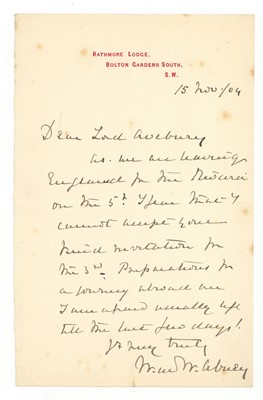 RATHMORE LODGE,
BOLTON GARDENS SOUTH,
S.W.
15 Nov/04
Dear Lord Avebury
as we are leaving
England for the Riviera
on the 5th I fear that I
cannot accept your
kind invitation for
the 3rd. Preparations for
a journey abroad are
I am afraid usually left
till the last few days!
Yrs very truly
W. de W. Abney